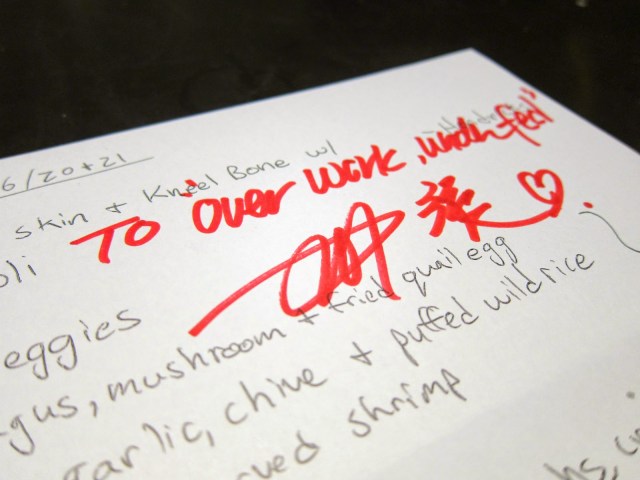 6/20+21
skin + Kneel Bone w/
TO "over work, under fed"
oli
eggies
gus, mushroom + fried quail egg
garlic, chive + puffed wild rice
rved shrimp